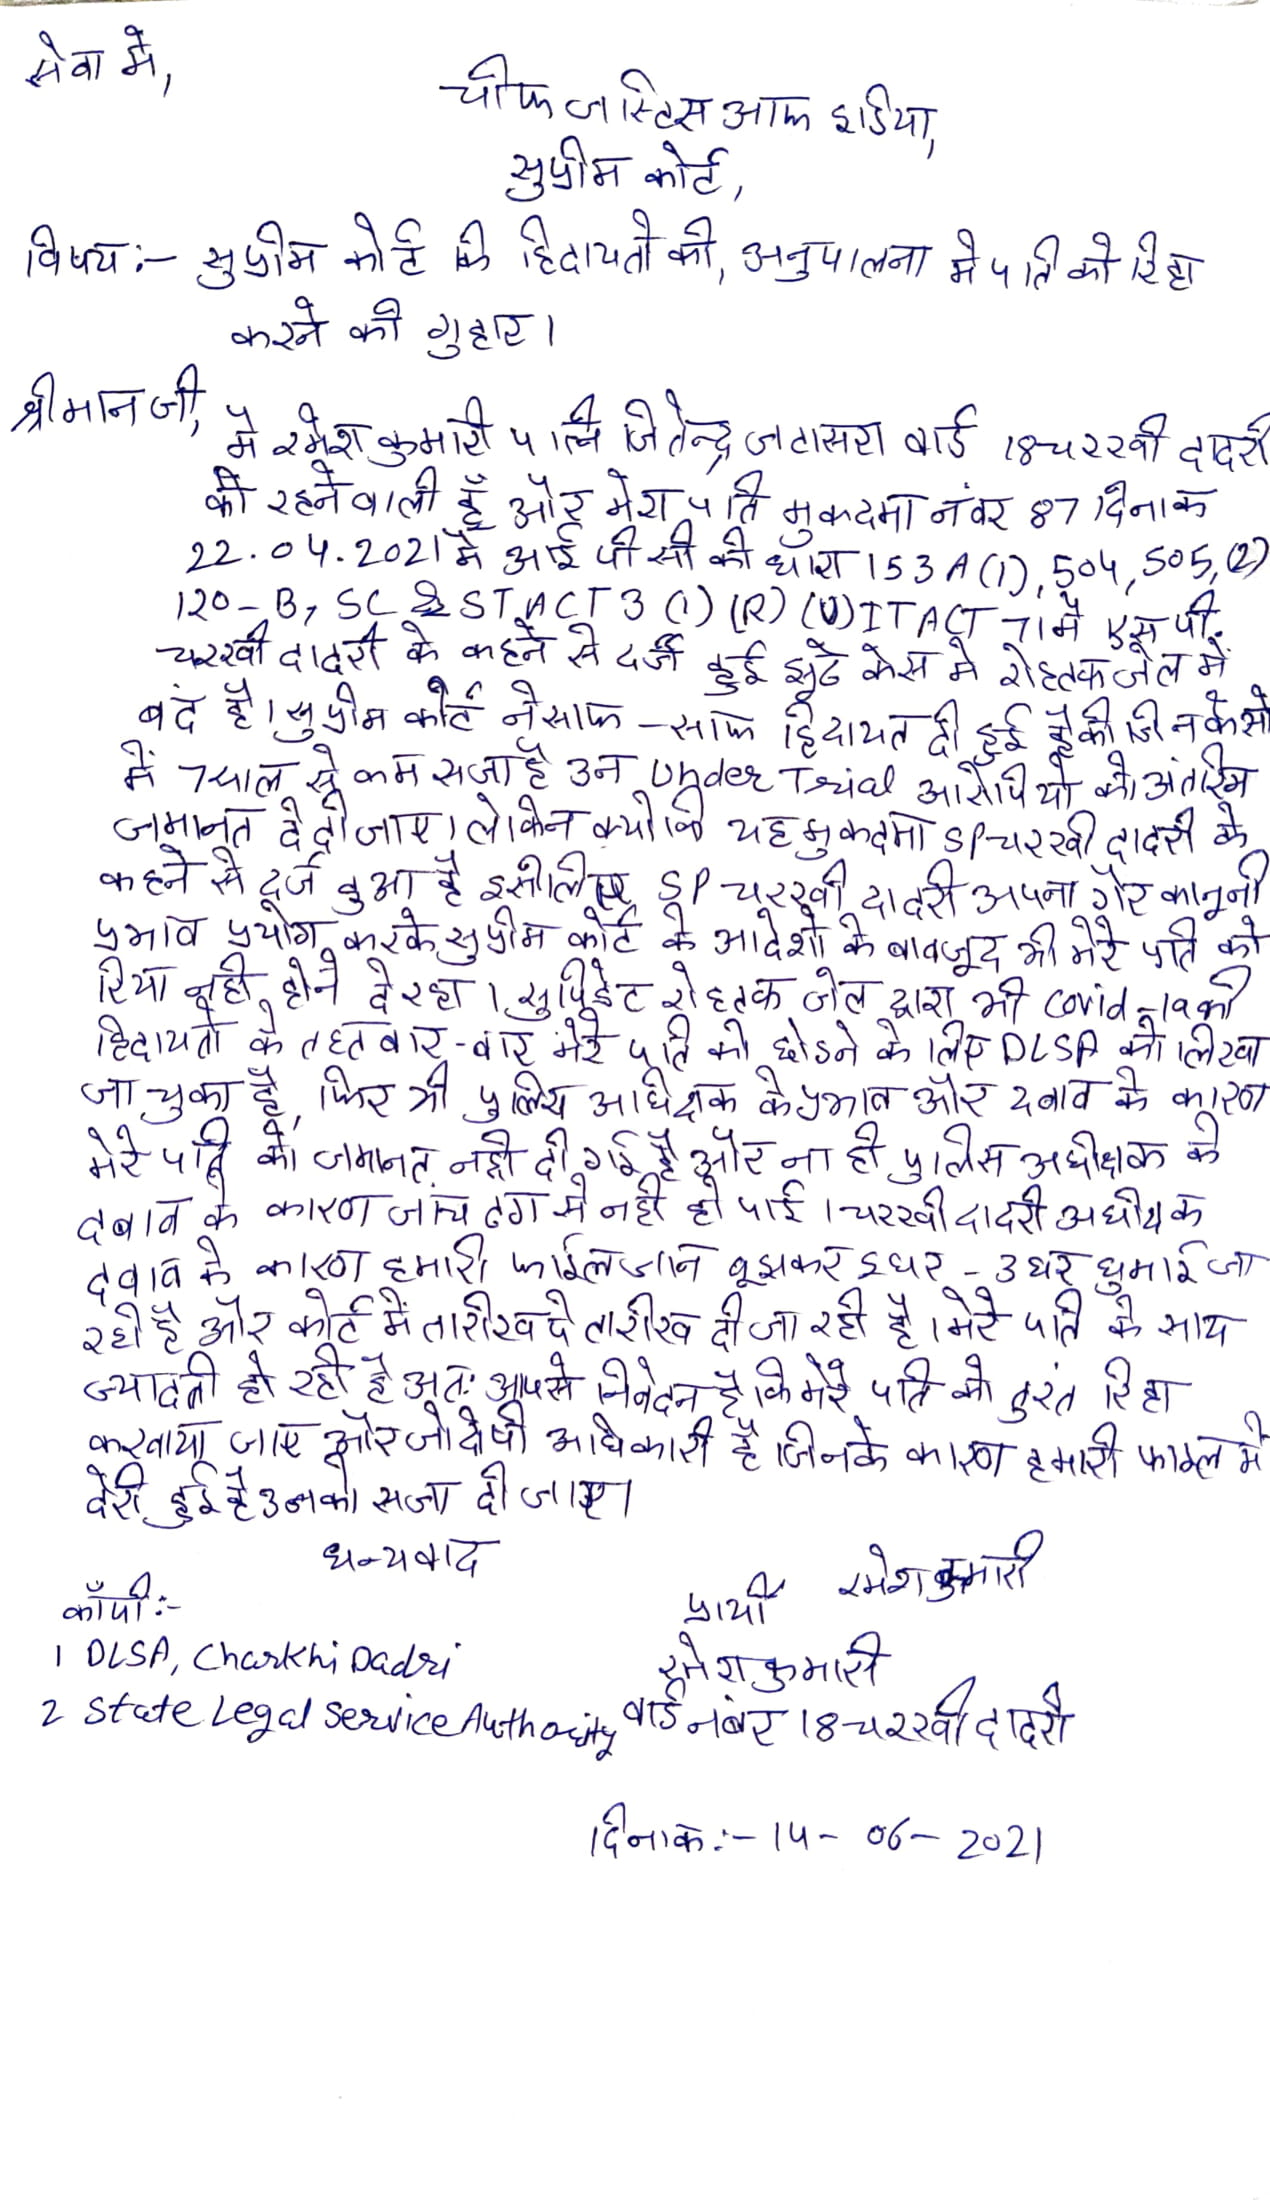 सेवा में,
चीफ जस्टिस आफ इडिया,
सुप्रीम कोर्ट,
विषय:- सुप्रीम कोर्ट कि हिदायतो की, अनुपालना मे पति को रिहा
करने की गुहार।
श्रीमान जी,
मै रमेश कुमारी पत्नि जितेन्द्र जटासरा वार्ड 18 चरखी दादरी
की रहने वाली हूँ और मेरा पति मुकदमा नंबर 87 दिनाक
22.04.2021 मे आई पी सी की धारा 153 A (1), 504, 505, (2)
120-B, SC & ST ACT 3 (1) (R) (U) IT ACT 71 मे एस पी.
चरखी दादरी के कहने से दर्ज हुई झूठे केस मे रोहतक जेल में
बंद है। सुप्रीम कोर्ट ने साफ-साफ हिदायत दी हुई है की जिन केसो
में 7 साल से कम सजा है उन Under Trial आरोपियो को अंतरिम
जमानत दे दी जाए। लेकिन क्योकि यह मुकदमा SP चरखी दादरी के
कहने से दर्ज हुआ है इसीलिए SP चरखी दादरी अपना गैर कानूनी
प्रभाव प्रयोग करके सुप्रीम कोर्ट के आदेशो के बावजूद भी मेरे पति को
रिया नही होने दे रहा। सुप्रिडेट रोहतक जेल द्वारा भी covid-19 की
हिदायतो के तहत बार-बार मेरे पति को छोडने के लिए DLSA को लिखा
जा चुका है, फिर भी पुलिस अधिक्षक के प्रभाव और दबाव के कारण
मेरे पति को जमानत नही दी गई है और ना ही पुलिस अधीक्षक के
दबाव के कारण जांच ढग से नही हो पाई। चरखी दादरी अधीयक
दवाव के कारण हमारी फाईल जान बूझकर इधर-उधर घुमाई जा
रही है और कोर्ट में तारीख पे तारीख दी जा रही है। मेरे पति के साथ
ज्यादती हो रही है अत: आपसे निवेदन है कि मेरे पति को तुरंत रिहा
करवाया जाए और जो दोषी अधिकारी है जिनके कारण हमारी फाइल मे
देरी हुई है उनको सजा दी जाए।
धन्यवाद
रमेश कुमारी
कॉपी:-
प्रार्थी
1 DLSA, Charkhi Dadri
रमेश कुमारी
2 State Legal Service Authority
वार्ड नंबर 18 चरखी दादरी
दिनाक:- 14-06-2021